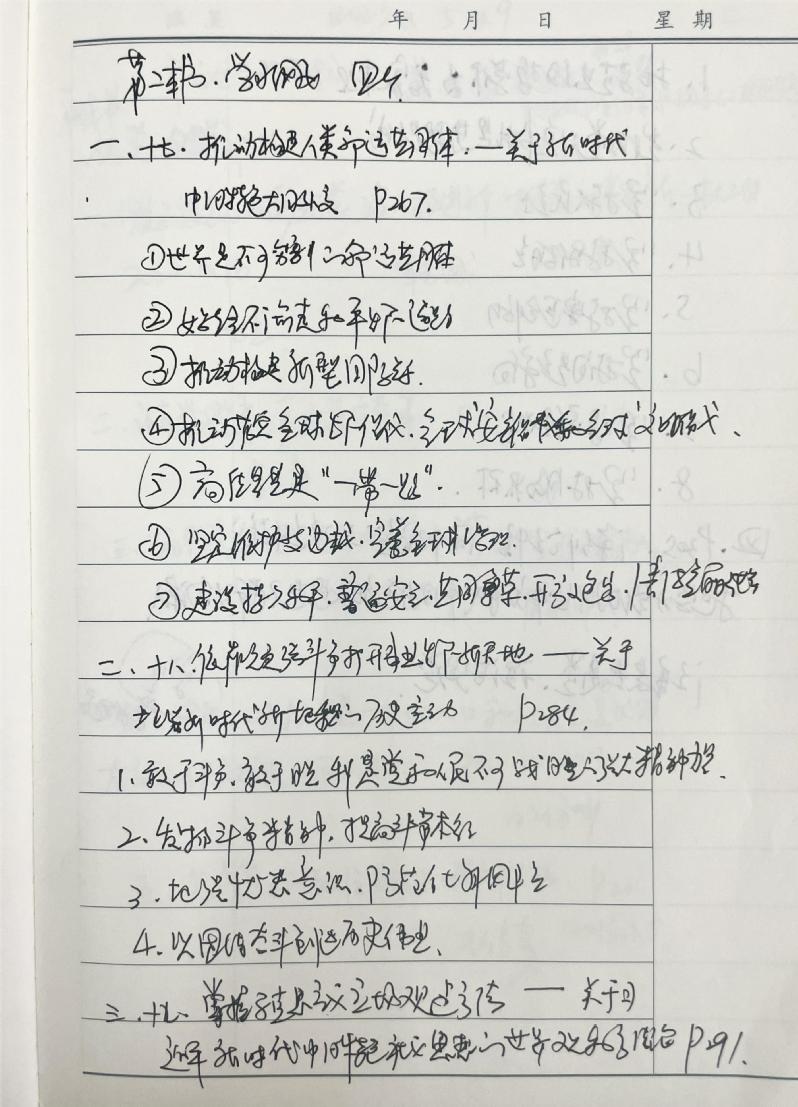 年 月 日 星期
第二本书、学习纲要 四
一、十七、推动构建人类命运共同体，—关于新时代
中国特色大国外交 P267.
①世界是不可分割的命运共同体
②始终不渝走和平发展道路
③推动构建新型国际关系.
④推动落实全球发展倡议、全球安全倡议和全球文明倡议、
⑤高质量是"一带一路".
⑥坚定维护 完善全球治理.
⑦建设持久和平、普遍安全、共同繁荣、开放包容、清洁美丽世界
二、十八、依靠顽强斗争打开事业发展新天地 ——关于
新时代新征程的历史主动 P284.
1、敢于斗争、敢于胜利是党和人民不可战胜的强大精神力量.
2、发扬斗争精神、提高斗争本领
3、增强忧患意识、防范化解风险
4、以团结奋斗创造历史伟业、
三、十九、掌握 马克思主义立场观点方法 —— 关于习
近平新时代中国特色社会主义思想的世界观和方法论 P291.